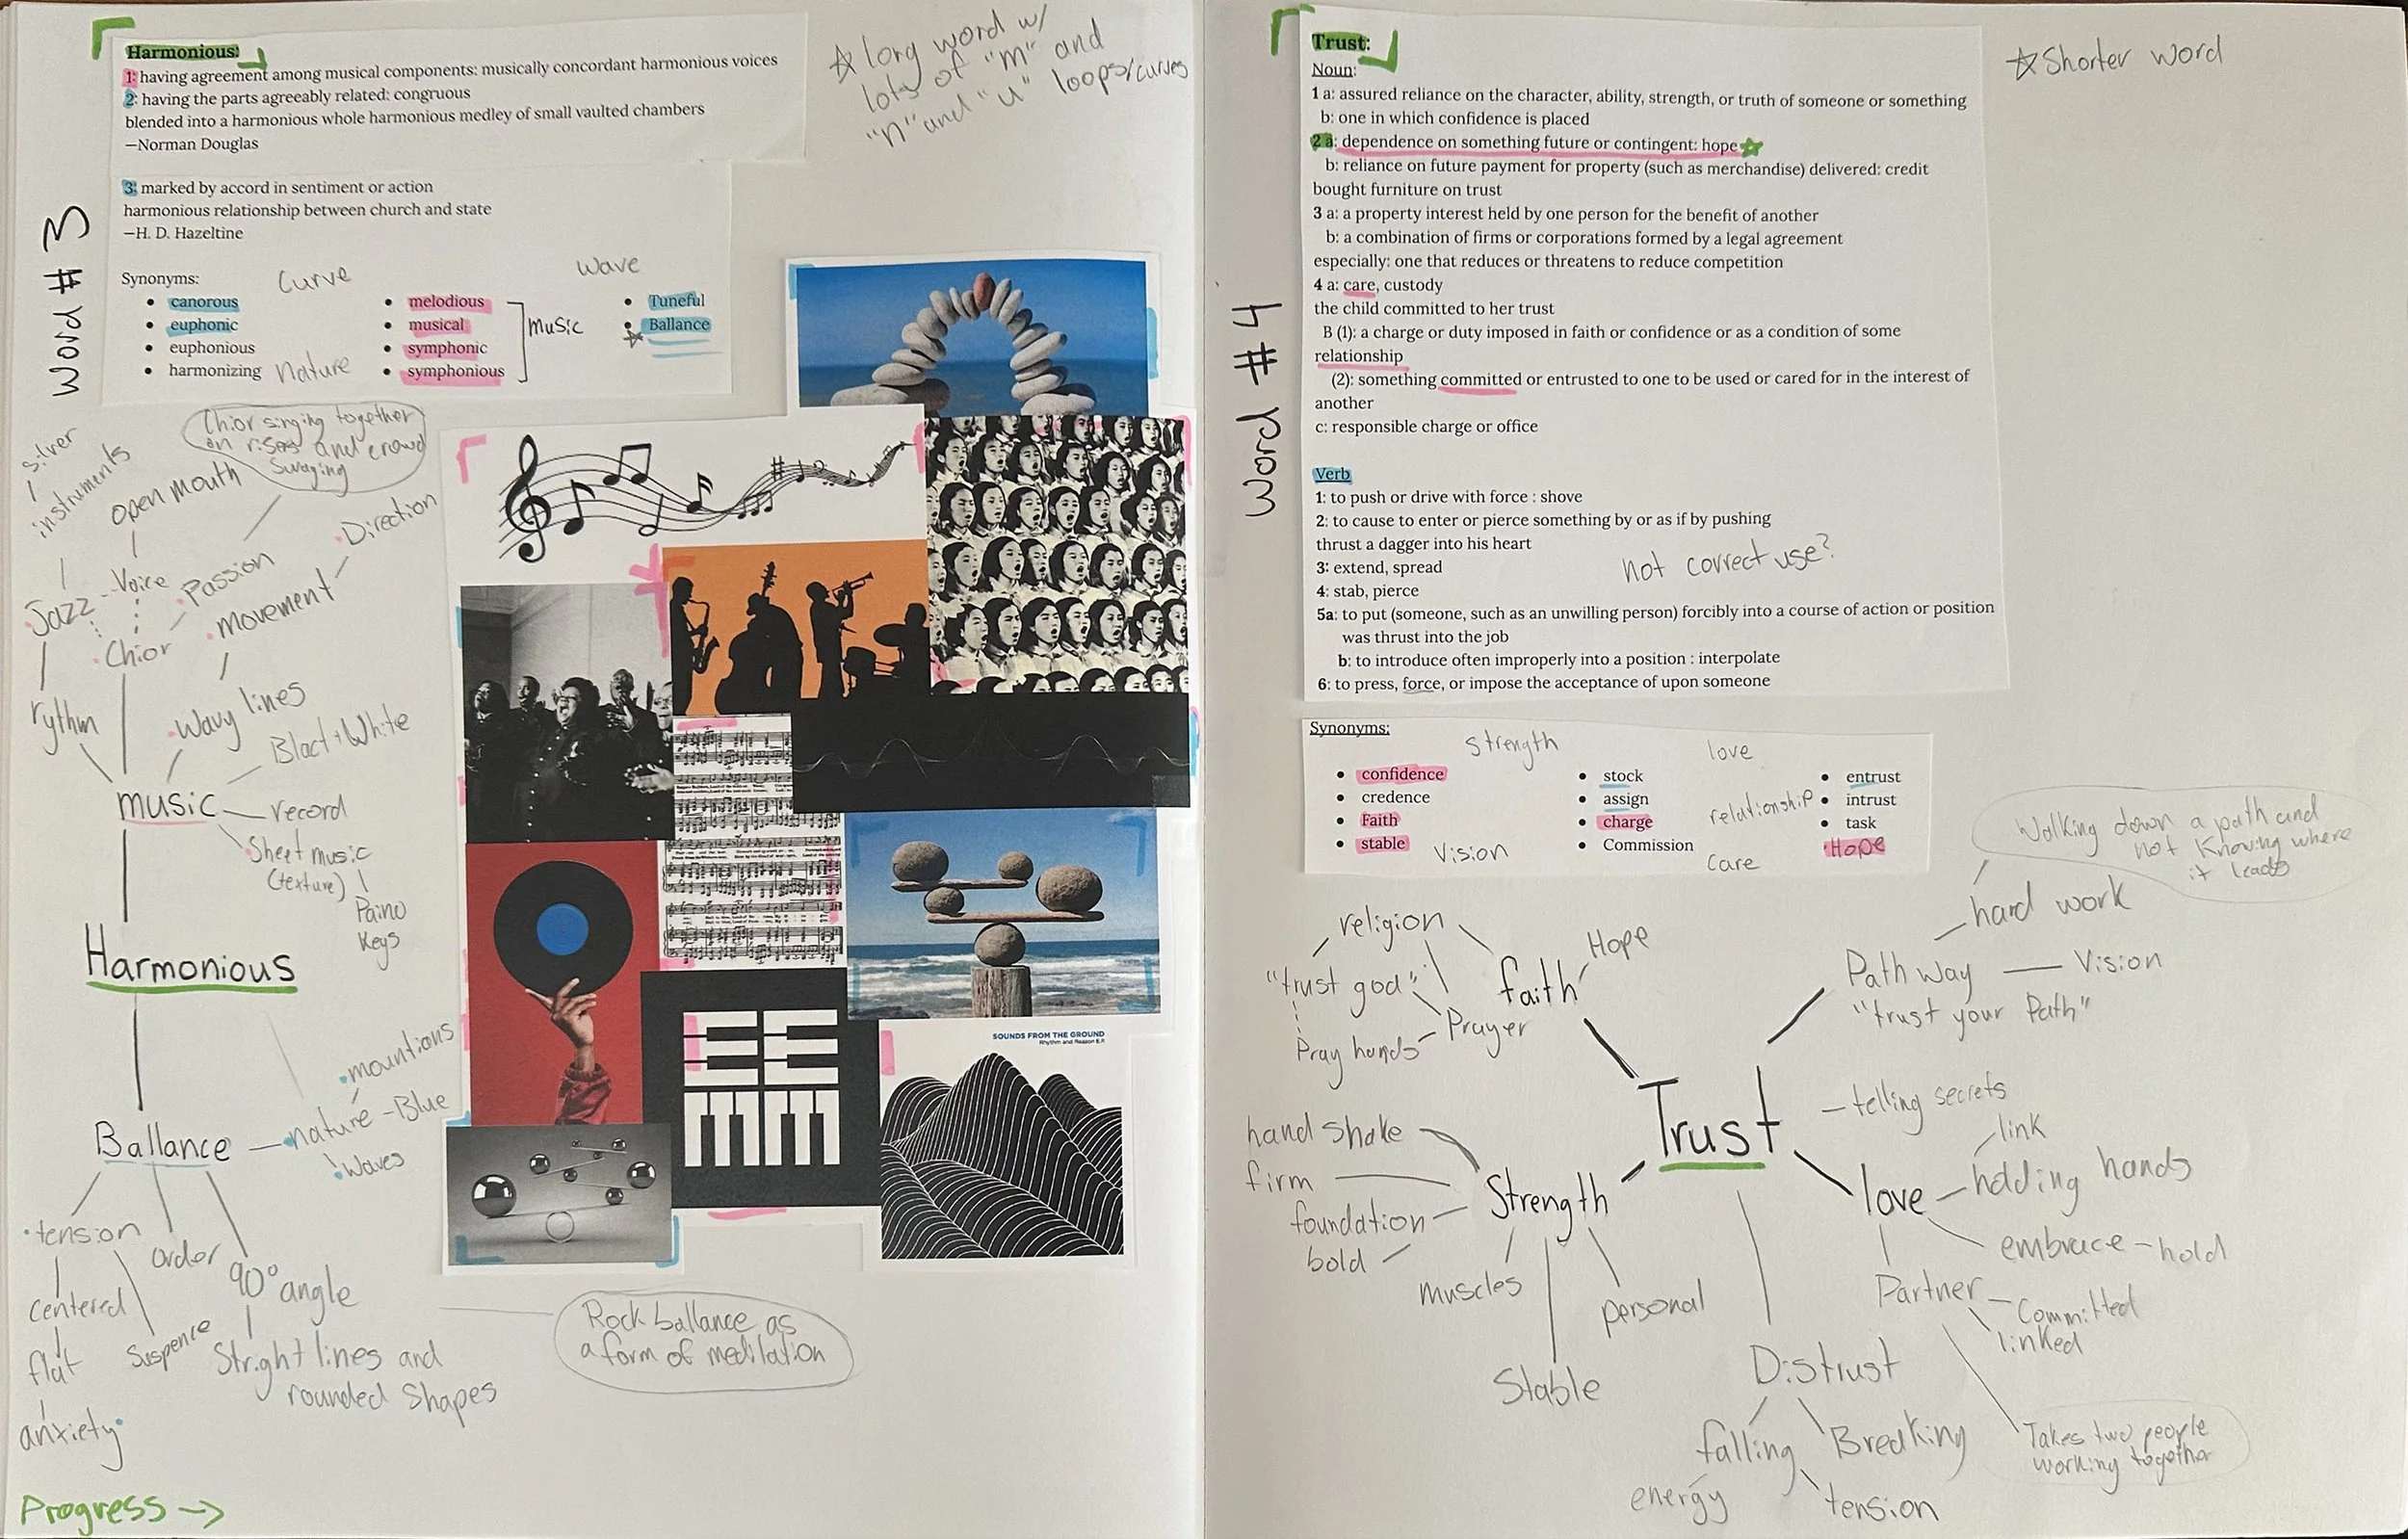 Harmonious:
1: having agreement among musical components: musically concordant harmonious voices
2: having the parts agreeably related: congruous
blended into a harmonious whole harmonious medley of small vaulted chambers
—Norman Douglas
3: marked by accord in sentiment or action
harmonious relationship between church and state
—H. D. Hazeltine
☆ long word w/
lots of "m" and
"n" and "u" loops/curves
Word #3
Synonyms:
Curve
Wave
• canorous
• euphonic
• euphonious
• harmonizing
Nature
• melodious
• musical
• symphonic
• symphonious
music
• Tuneful
• Ballance
Chior singing together
on risers and crowd
swaying
silver
instruments
open mouth
Direction
Jazz
Voice
Passion
movement
Chior
rythm
Wavy lines
Blact + White
music
record
Sheet music
(texture)
Paino
Keys
Harmonious
mountions
nature - Blue
Waves
Ballance
tension
order
90° angle
Centered
Suspence
Stright lines and
rounded shapes
flat
anxiety
Rock ballance as
a form of meditation
SOUNDS FROM THE GROUND
Rhythm and Reason E.P.
Progress →
Trust:
☆ Shorter word
Noun:
1 a: assured reliance on the character, ability, strength, or truth of someone or something
b: one in which confidence is placed
2 a: dependence on something future or contingent: hope
b: reliance on future payment for property (such as merchandise) delivered: credit
bought furniture on trust
3 a: a property interest held by one person for the benefit of another
b: a combination of firms or corporations formed by a legal agreement
especially: one that reduces or threatens to reduce competition
4 a: care, custody
the child committed to her trust
B (1): a charge or duty imposed in faith or confidence or as a condition of some
relationship
(2): something committed or entrusted to one to be used or cared for in the interest of
another
c: responsible charge or office
Word #4
Verb
1: to push or drive with force : shove
2: to cause to enter or pierce something by or as if by pushing
thrust a dagger into his heart
3: extend, spread
not correct use?
4: stab, pierce
5a: to put (someone, such as an unwilling person) forcibly into a course of action or position
was thrust into the job
b: to introduce often improperly into a position : interpolate
6: to press, force, or impose the acceptance of upon someone
Synonyms:
Strength
love
• confidence
• credence
• Faith
• stable
Vision
• stock
• assign
• charge
• Commission
relationship
Care
• entrust
• intrust
• task
• Hope
Walking down a path and
not knowing where
it leads
hard work
religion
Hope
"trust god"
faith
Path way
Vision
"trust your Path"
Prayer
Pray hands
Trust
telling secrets
link
hand shake
firm
Strength
love
holding hands
foundation
bold
embrace - hold
muscles
personal
Partner
Committed
linked
Stable
Distrust
falling
Breaking
Takes two people
working together
energy
tension